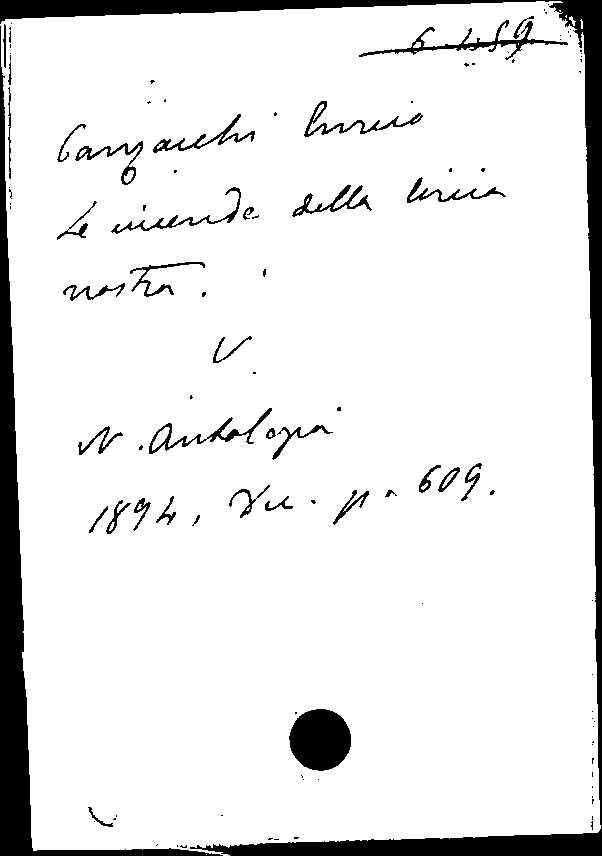 6.4.59
Panzacchi Enrico
Le vicende della lirica
nostra.
V.
N. Antologia
1894, Dic. p. 609.